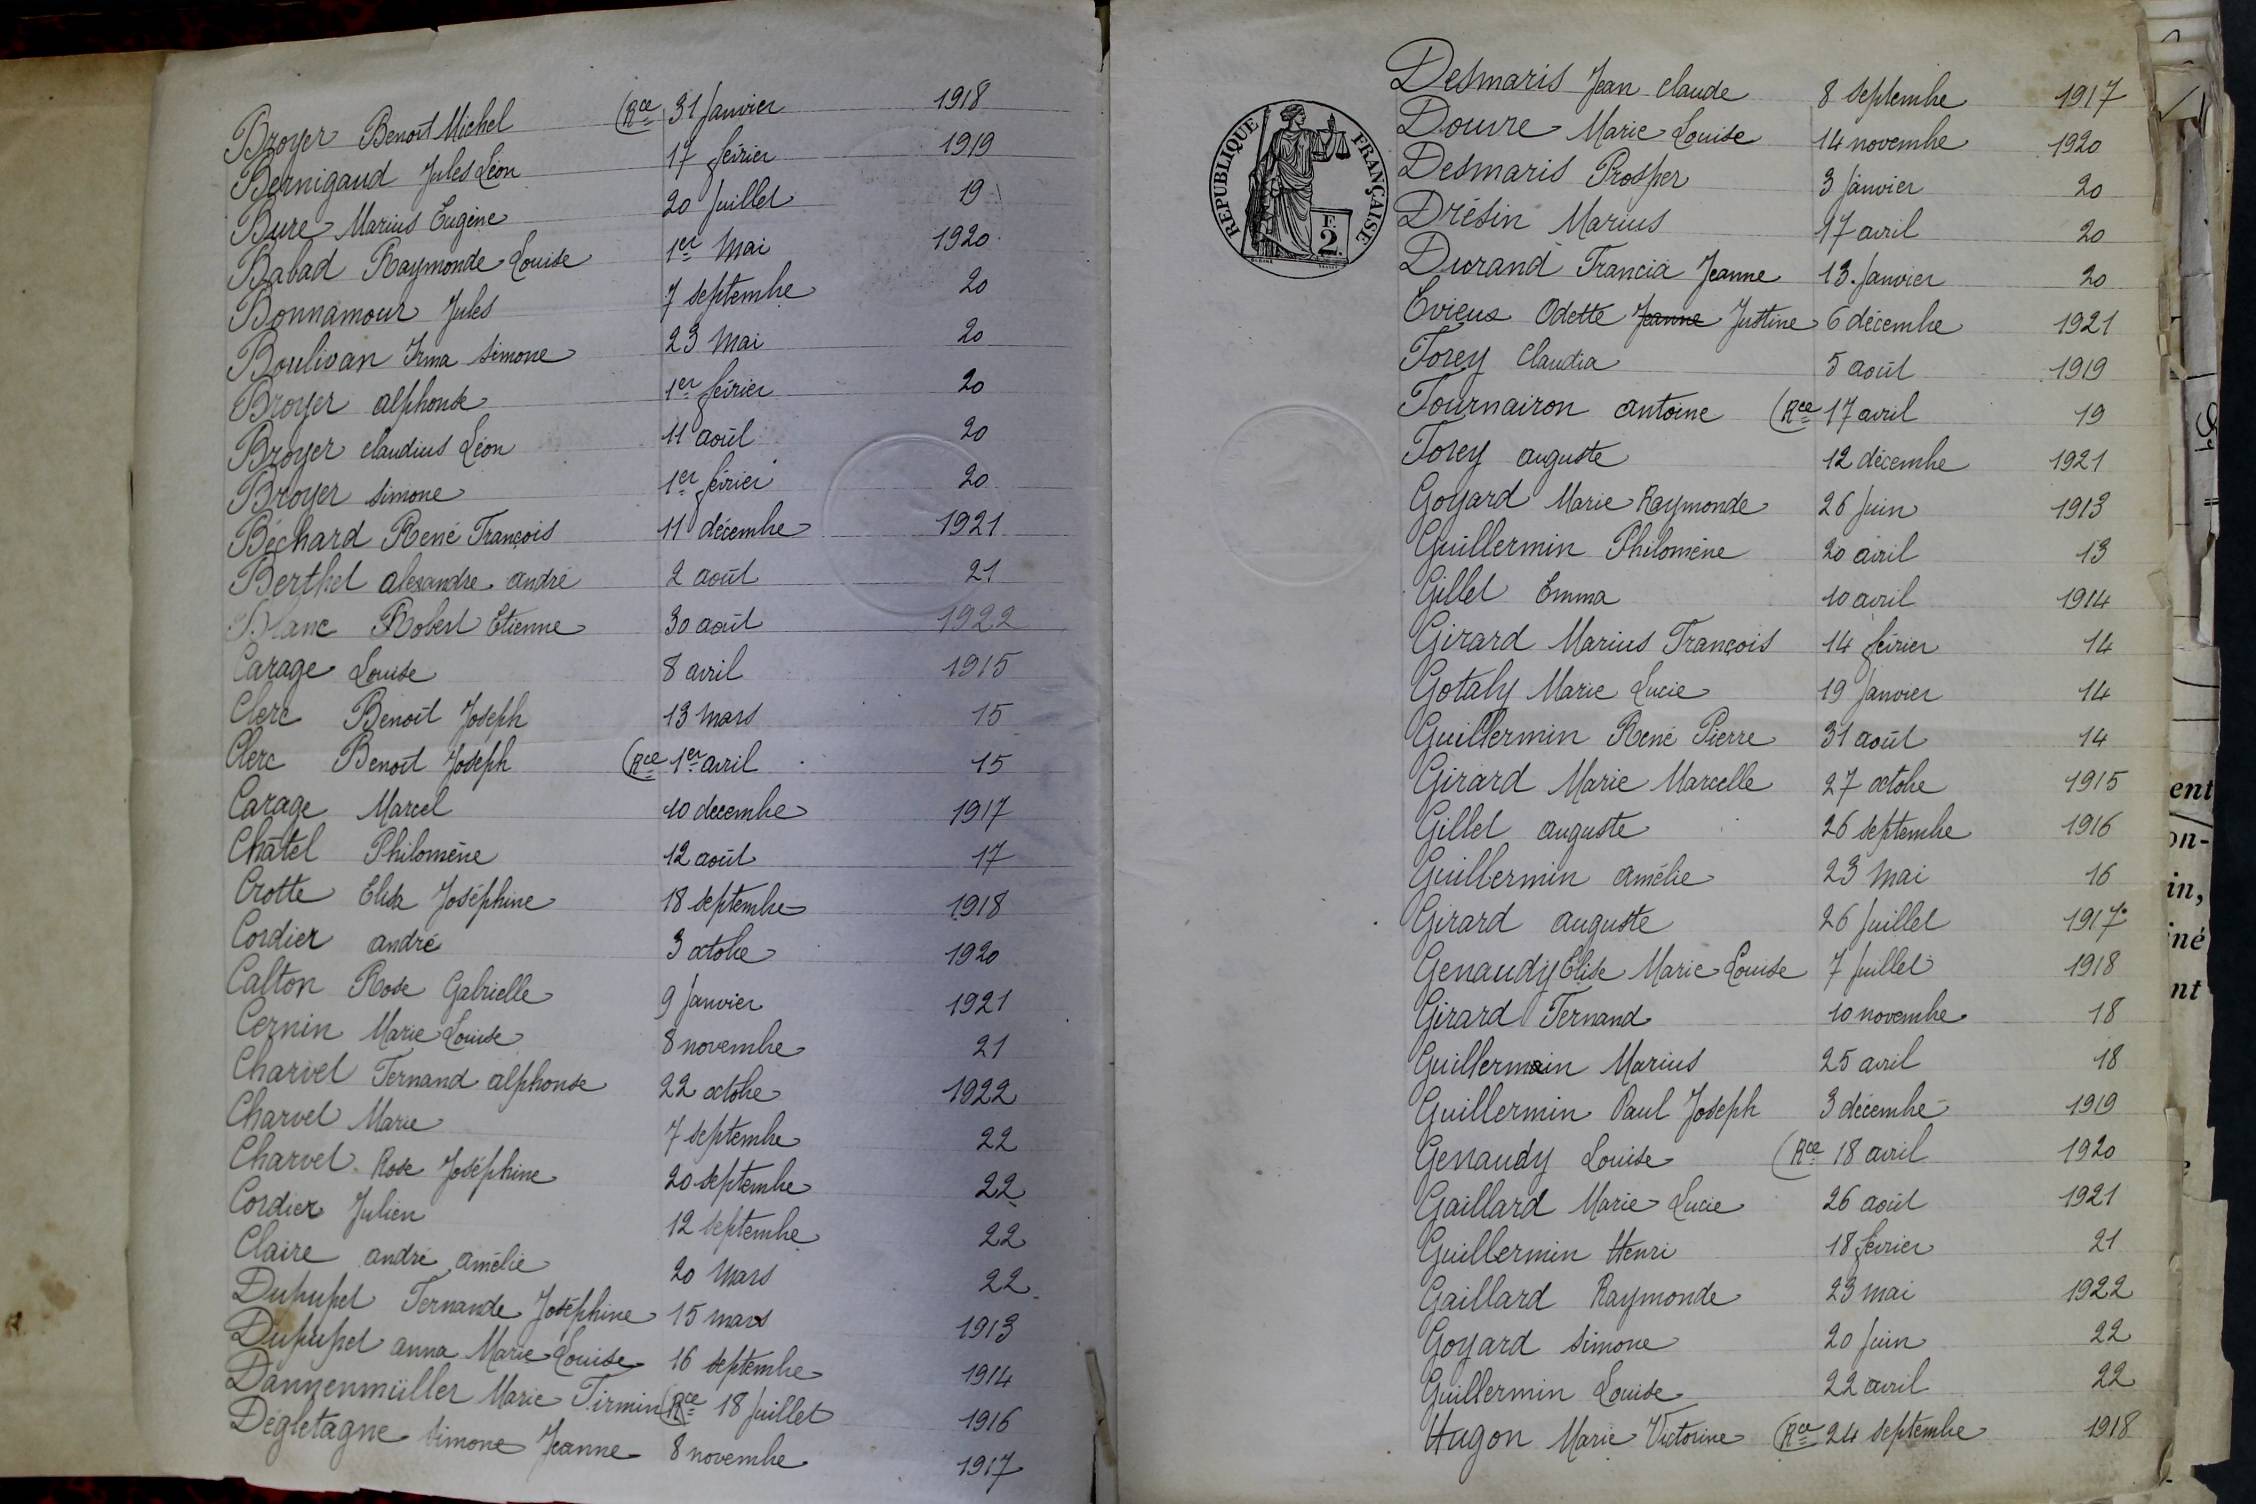 Broyer Benoît Michel (Rce 31 Janvier 1918
Bernigaud Jules Léon 17 février 1919
Bure Marius Eugène 20 Juillet 19
Babad Raymonde Louise 1er Mai 1920
Bonnamour Jules 7 septembre 20
Boulivan Irma Simone 23 Mai 20
Broyer alphonse 1er février 20
Broyer claudius Léon 11 août 20
Broyer simone 1er février 20
Béchard René François 11 décembre 1921
Berthet alexandre andré 2 août 21
Blanc Robert Etienne 30 août 1922
Carage Louise 8 avril 1915
Clerc Benoît Joseph 13 Mars 15
Clerc Benoît Joseph (Rce 1er avril 15
Carage Marcel 10 decembre 1917
Châtel Philomène 12 août 17
Crotte Elisa Joséphine 18 septembre 1918
Cordier andré 3 octobre 1920
Calton Rose Gabrielle 9 Janvier 1921
Cernin Marie Louise 8 novembre 21
Charvet Fernand alphonse 22 octobre 1922
Charvet Marie 7 septembre 22
Charvet Rose Joséphine 20 septembre 22
Cordier Julien 12 septembre 22
Claire andré amélie 20 Mars 22
Dupupet Fernande Joséphine 15 mars 1913
Dupupet anna Marie Louise 16 septembre 1914
Dannenmüller Marie Firmin (Rce 18 Juillet 1916
Dégletagne Simone Jeanne 8 novembre 1917
REPUBLIQUE FRANÇAISE
F.
2.
Desmaris Jean claude 8 septembre 1917
Douvre Marie Louise 14 novembre 1920
Desmaris Prosper 3 Janvier 20
Drésin Marius 17 avril 20
Durand Francia Jeanne 13 Janvier 20
Evieux Odette Jeanne Justine 6 décembre 1921
Forey Claudia 5 août 1919
Fournairon antoine (Rce 17 avril 19
Forey auguste 12 décembre 1921
Goyard Marie Raymonde 26 Juin 1913
Guillermin Philomène 20 avril 13
Gillet Emma 10 avril 1914
Girard Marius François 14 février 14
Gotaly Marie Lucie 19 Janvier 14
Guillermin René Pierre 31 août 14
Girard Marie Marcelle 27 octobre 1915
Gillet auguste 26 septembre 1916
Guillermin amélie 23 Mai 16
Girard auguste 26 Juillet 1917
Genaudy Elise Marie Louise 7 Juillet 1918
Girard Fernand 10 novembre 18
Guillermin Marius 25 avril 18
Guillermin Paul Joseph 3 décembre 1919
Genaudy Louise (Rce 18 avril 1920
Gaillard Marie Lucie 26 août 1921
Guillermin Henri 18 février 21
Gaillard Raymonde 23 mai 1922
Goyard simone 20 Juin 22
Guillermin Louise 22 avril 22
Hugon Marie Victorine (Rce 24 septembre 1918
ent
on-
in,
iné
nt